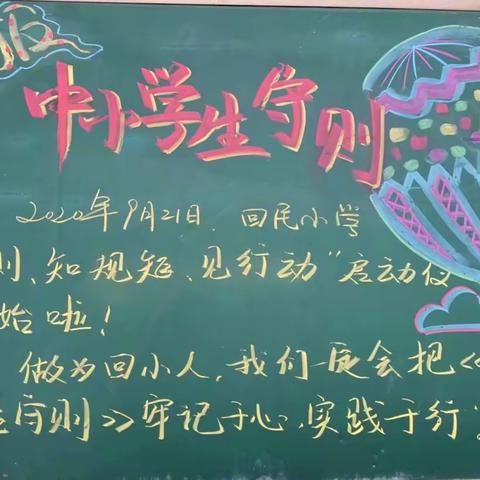 报
中小学生守则
2020年9月21日，回民小学
则、知规矩、见行动"启动仪
始啦！
做为回小人，我们一定会把《
生守则》牢记于心，实践于行